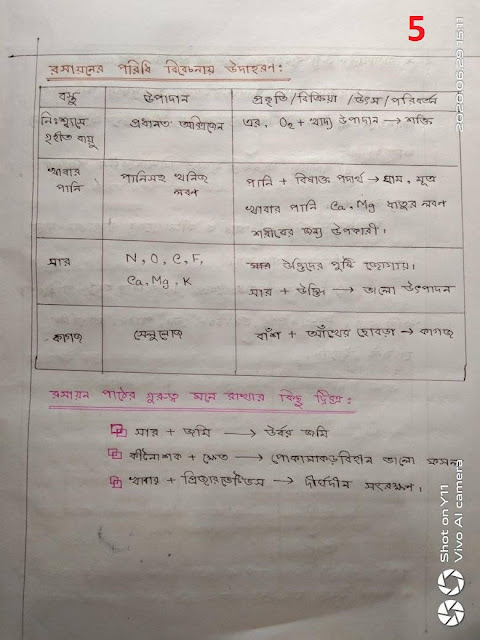 5
রসায়নের পরিধি বিবেচনায় উদাহরণ:
বস্তু উপাদান প্রকৃতি/বিক্রিয়া/উৎস/পরিবর্তন
নিঃশ্বাসে গৃহীত বায়ু প্রধানত অক্সিজেন এর, O₂ + খাদ্য উপাদান → শক্তি
খাবার পানি পানিসহ খনিজ লবণ পানি + বিষাক্ত পদার্থ → ঘাম, মূত্র
খাবার পানি Ca, Mg ধাতুর লবণ
শরীরের জন্য উপকারী।
সার N, O, C, F, উদ্ভিদের পুষ্টি জোগায়।
Ca, Mg, K সার + উদ্ভিদ → ভালো উৎপাদন
কাগজ সেলুলোজ বাঁশ + আঁখের ছোবড়া → কাগজ
রসায়ন পাঠের গুরুত্ব মনে রাখার কিছু ট্রিক্স:
সার + জমি → উর্বর জমি
কীটনাশক + ক্ষেত → পোকামাকড়বিহীন ভালো ফসল
খাবার + প্রিজারভেটিভস → দীর্ঘদিন সংরক্ষণ।
Shot on Y11
Vivo AI camera
2020.05.29 15:11